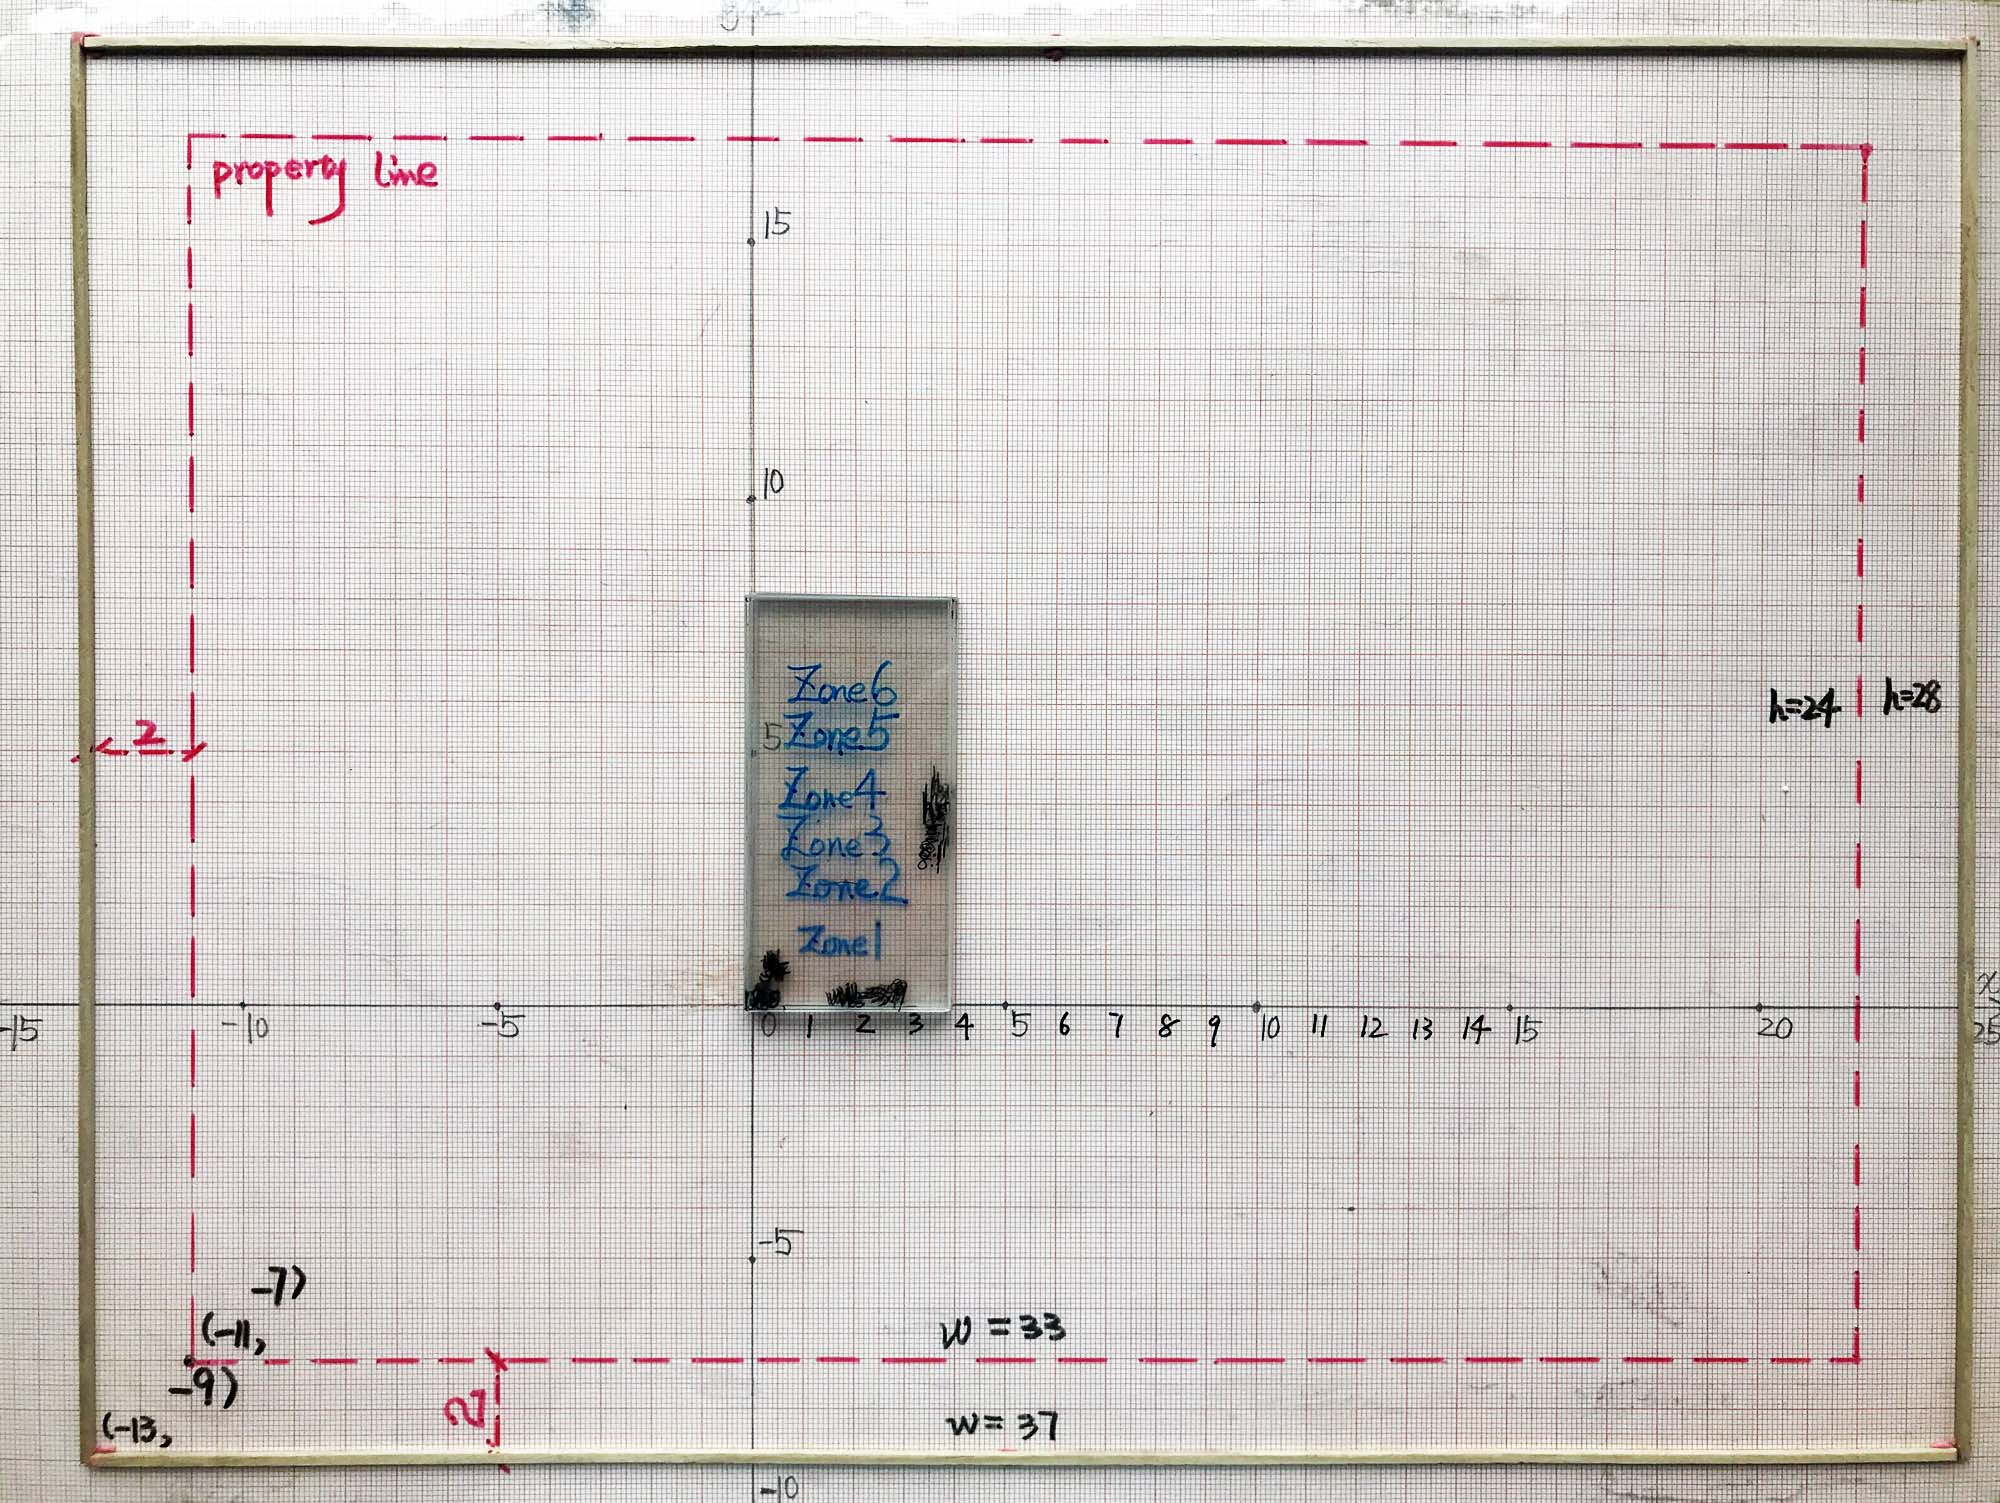 property line
15
10
Zone6
5 Zone5
2
h=24 h=28
Zone4
Zone3
Zone2
Zone1
x
-15 -10 -5 0 1 2 3 4 5 6 7 8 9 10 11 12 13 14 15 20 25
-5
-7)
(-11,
w = 33
-9)
(-13,
2
w = 37
-10